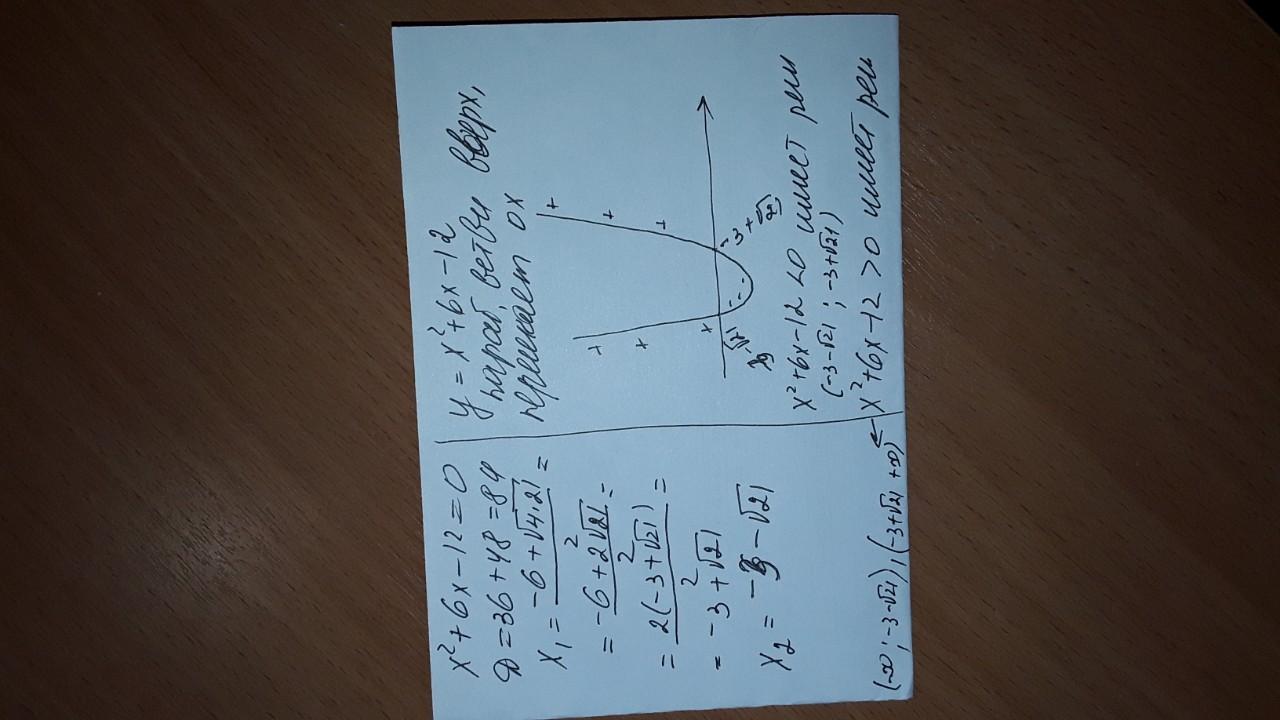 x²+6x-12=0
D=36+48=84
x₁ = (-6+√4·21)/2 =
= (-6+2√21)/2 =
= 2(-3+√21)/2 =
= -3+√21
x₂ = -3-√21
y = x²+6x-12
параб, ветви вверх,
пересекает ox
+ +
+ +
+ +
- - -
-3-√21 -3+√21
x²+6x-12<0 имеет реш
(-3-√21 ; -3+√21)
x²+6x-12>0 имеет реш
(-∞; -3-√21), (-3+√21 +∞) ←